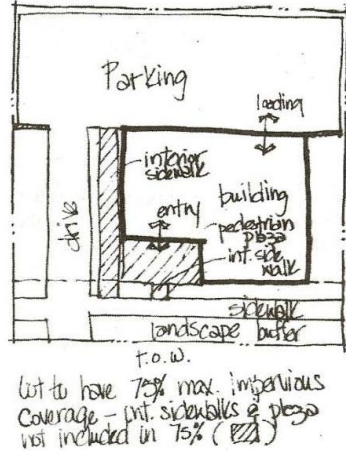 Parking
loading
interior
sidewalk
building
entry
pedestrian
plaza
drive
int. side
walk
sidewalk
landscape buffer
r.o.w.
lot to have 75% max. impervious
coverage - int. sidewalks & plaza
not included in 75% ( )